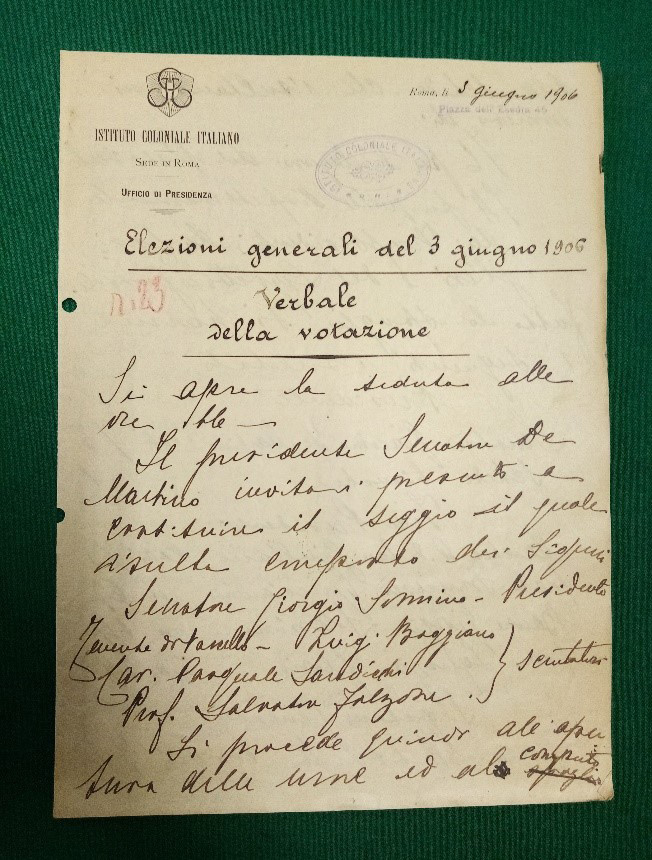 Roma, li 3 giugno 1906
Piazza dell' Esedra 45
ISTITUTO COLONIALE ITALIANO
SEDE IN ROMA
UFFICIO DI PRESIDENZA
ISTITUTO COLONIALE ITALIANO
Elezioni generali del 3 giugno 1906
n. 23
Verbale
della votazione
Si apre la seduta alle
ore
Il presidente Senatore De
Martino invita i presenti a
costituire il seggio il quale
risulta composto dei Signori
Senatore Giorgio Sonnino - Presidente
Tenente di Vascello - Luigi Baggiano
Cav. Pasquale Sandicchi
scrutatori
Prof. Salvatore Falzone.
Si procede quindi all' aper
tura delle urne ed al computo
spoglio